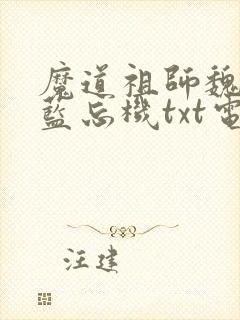 魔道祖師魏
藍忘機txt電
汪建